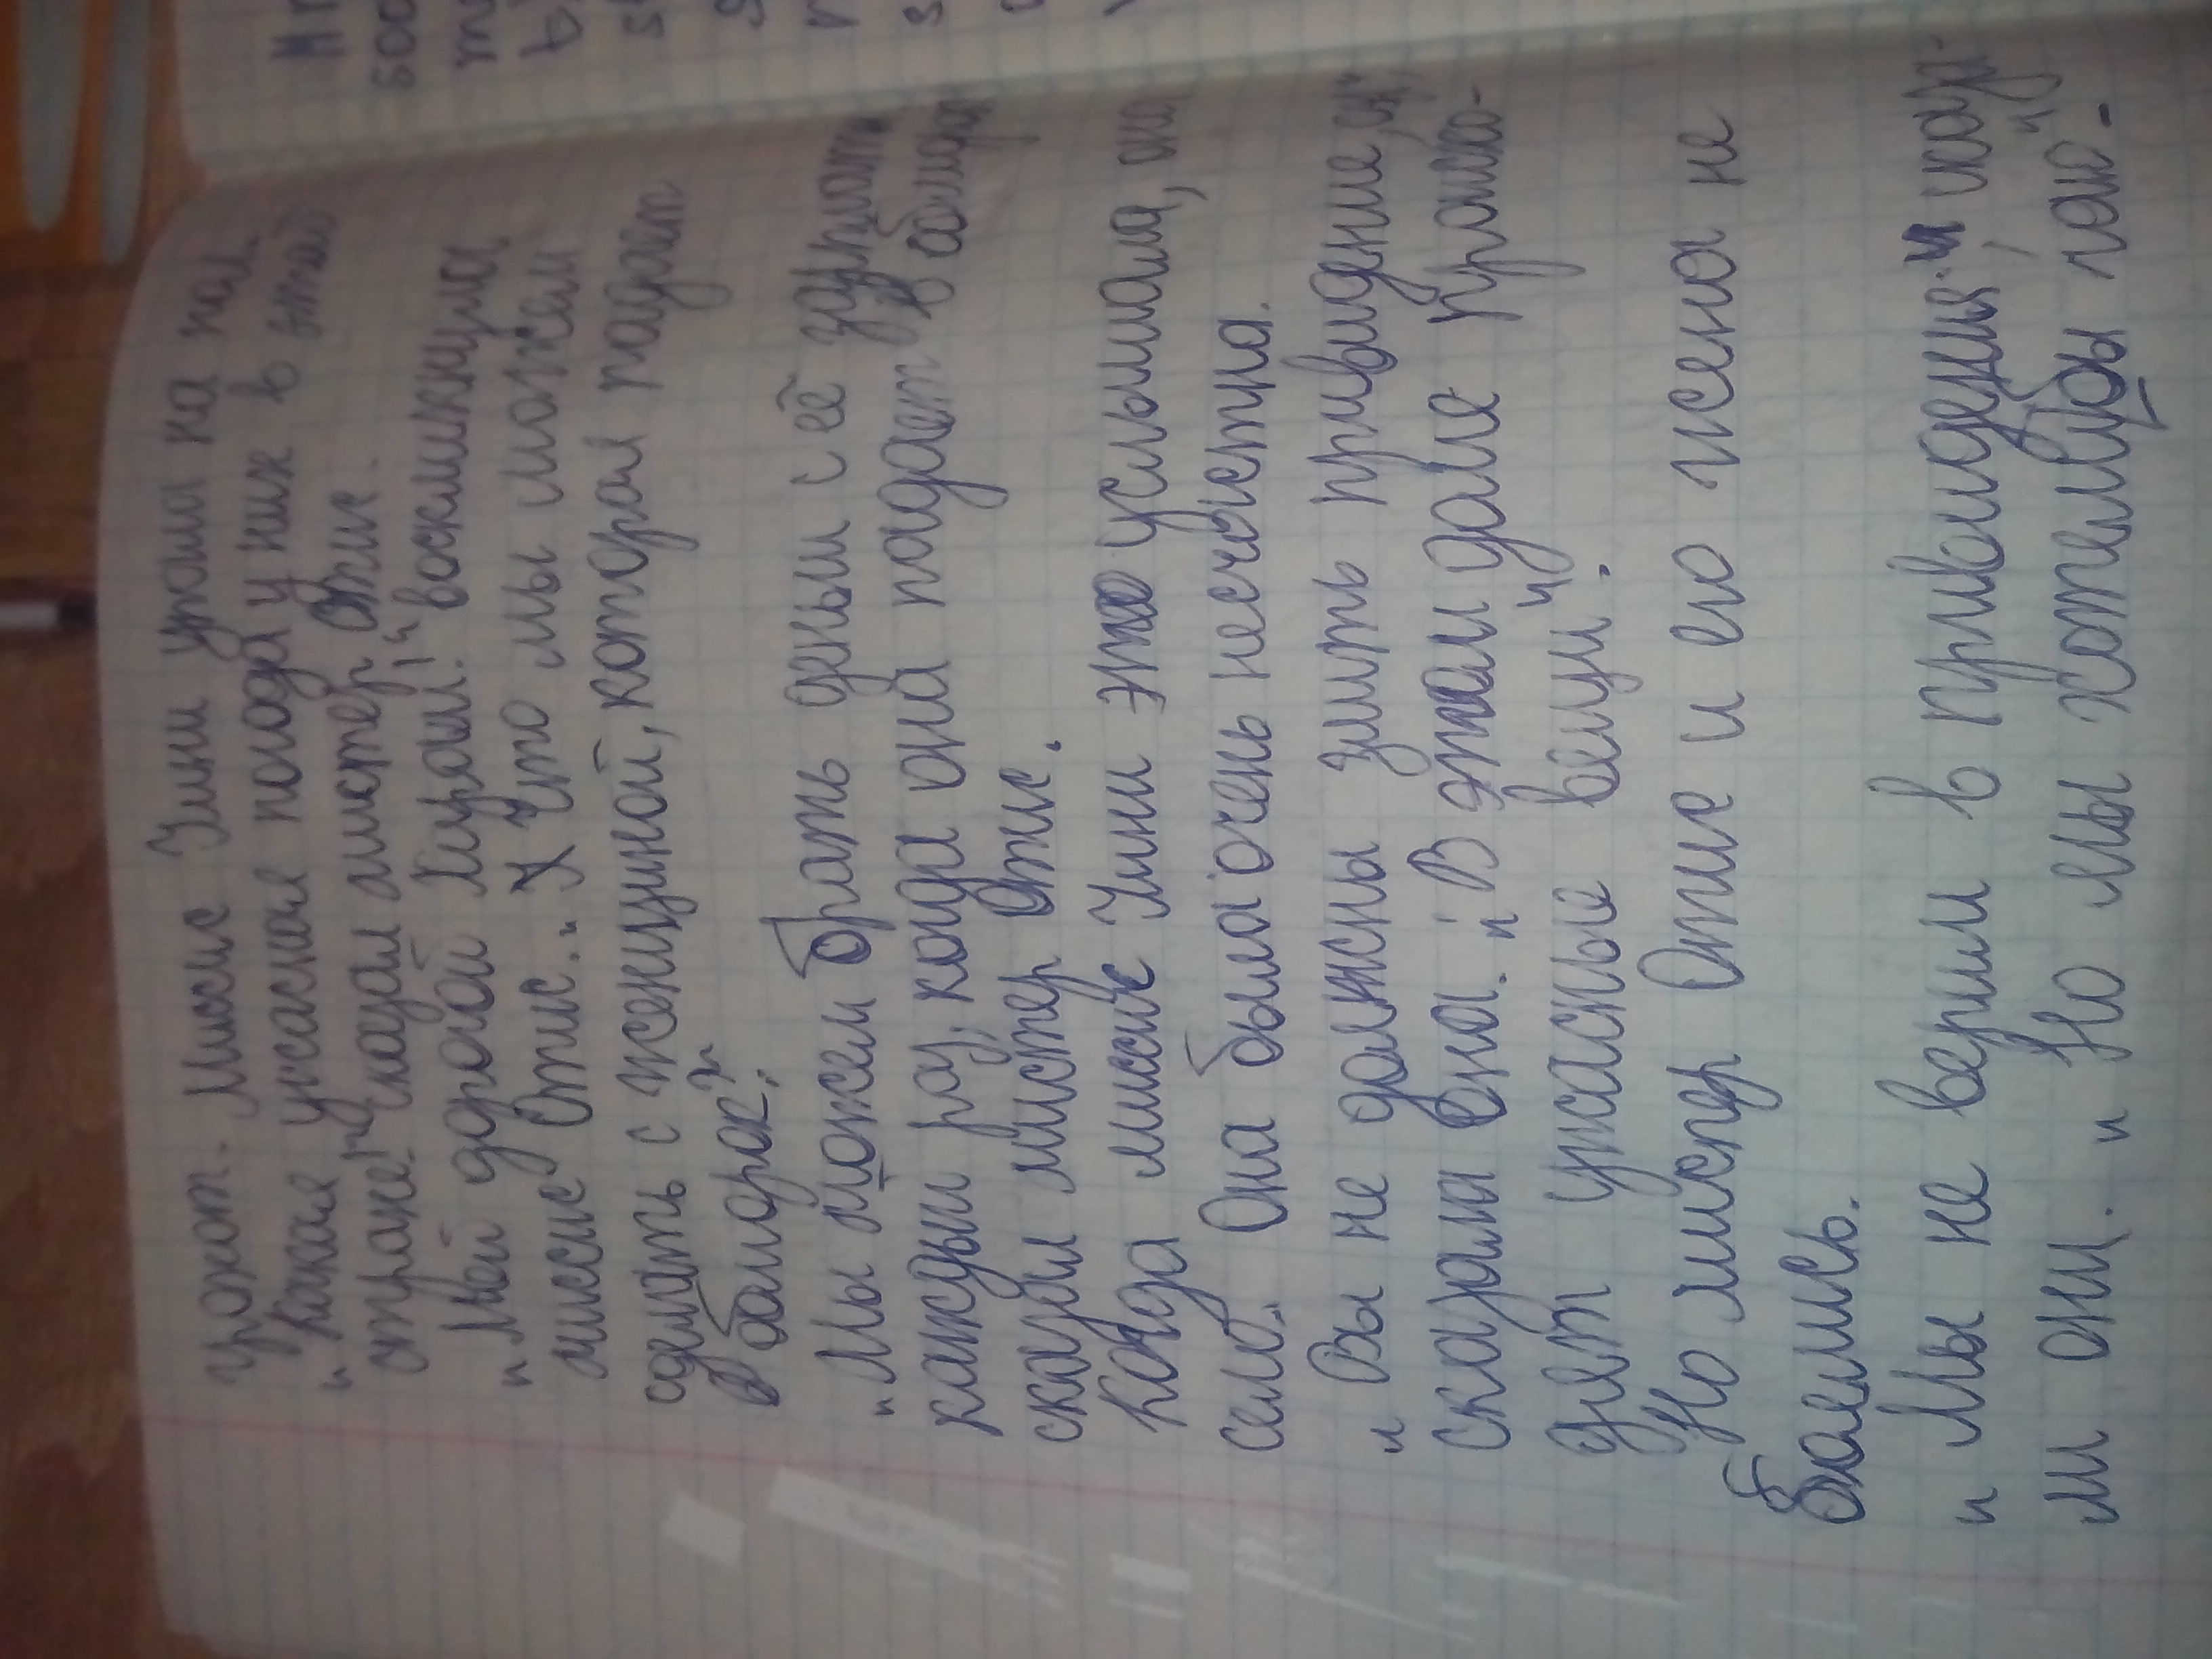 грохот. Миссис Умни упала на пол.
"Какая ужасная погода у них в этой
стране" сказал мистер Отис.
"Мой дорогой Хирам!" воскликнула
миссис Отис. "Что мы можем
сделать с женщиной, которая падает
в обморок?"
"Мы можем брать деньги с её зарплаты
каждый раз, когда она падает в обморок
сказал мистер Отис.
Когда миссис Умни это услышала, она
села. Она была очень несчастна.
"Вы не должны злить привидение,"
сказала она. "В этом доме происхо-
дят ужасные вещи".
Но мистер Отис и его жена не
боялись.
"Мы не верим в привидения," сказа-
ли они. "Но мы хотели бы чаю."